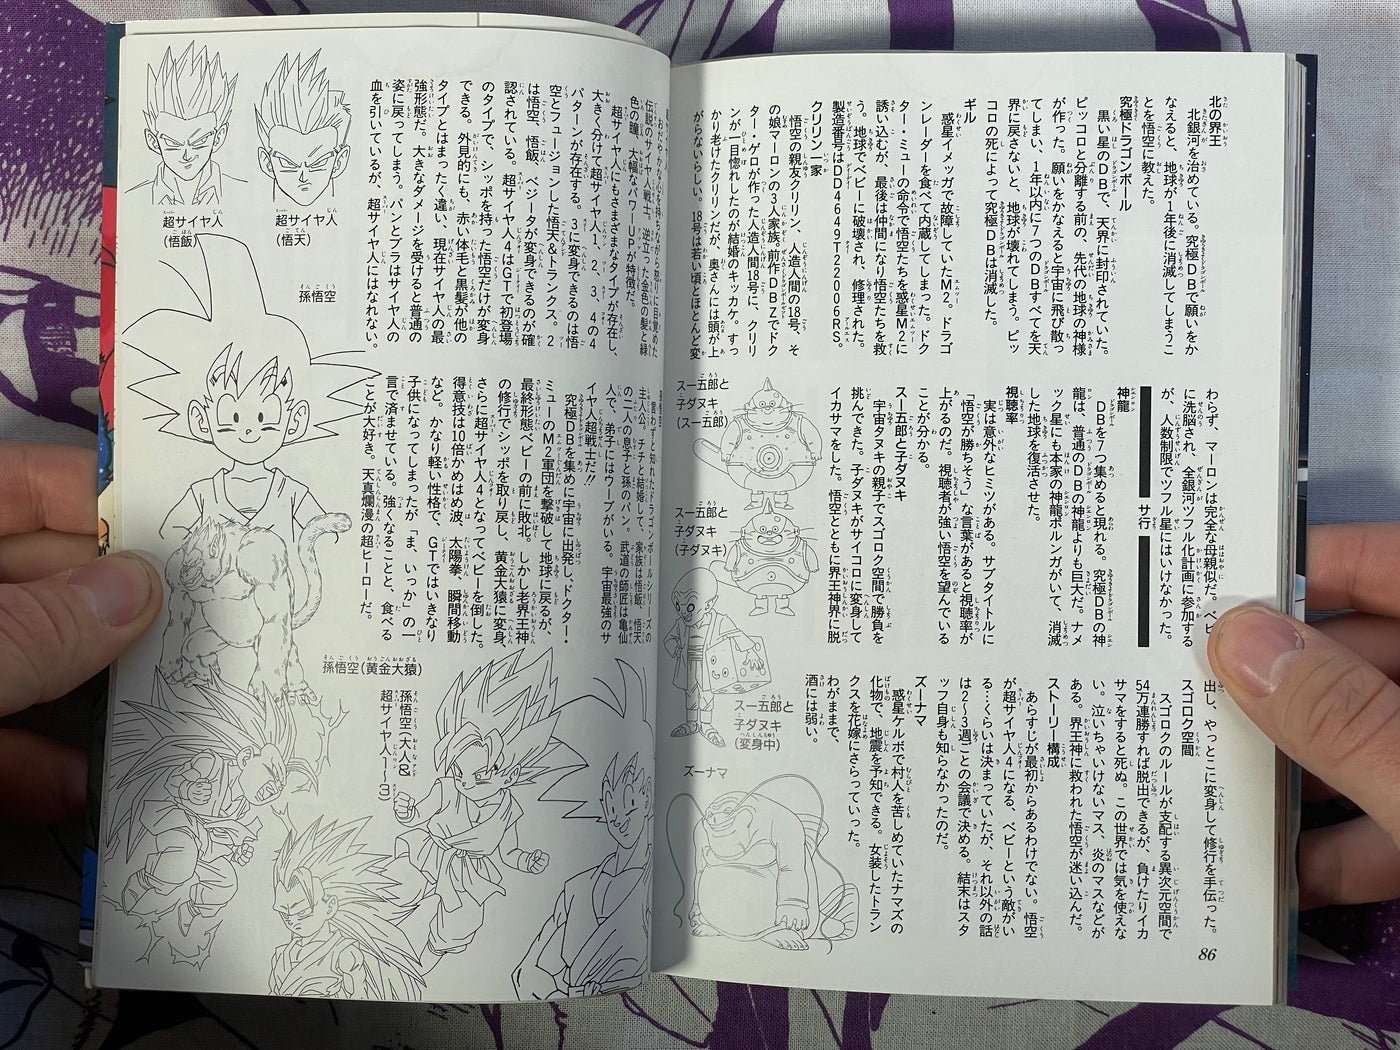 北の界王
北銀河を治めている。究極DBで願いをか
なえると、地球が1年後に消滅してしまうこ
とを悟空に教えた。
究極ドラゴンボール
黒い星のDBで、天界に封印されていた。
ピッコロと分離する前の、先代の地球の神様
が作った。願いをかなえると宇宙に飛び散っ
てしまい、1年以内に7つのDBすべてを天
界に戻さないと、地球が壊れてしまう。ピッ
コロの死によって究極DBは消滅した。
ギル
惑星イメッガで故障していたM2。ドラゴ
ンレーダーを食べて内蔵してしまった。ドク
ター・ミューの命令で悟空たちを惑星M2に
誘い込むが、最後は仲間になり悟空たちを救
う。地球でベビーに破壊され、修理された。
製造番号はDD4649T22006RS。
クリリン一家
悟空の親友クリリン、人造人間の18号、そ
の娘マーロンの3人家族。前作DBZでドク
ター・ゲロが作った人造人間18号に、クリリ
ンが一目惚れしたのが結婚のキッカケ。すっ
かり老けたクリリンだが、奥さんには頭が上
がらないらしい。18号は若い頃とほとんど変
わらず、マーロンは完全な母親似だ。ベビー
に洗脳され、全銀河ツフル化計画に参加する
が、人数制限でツフル星にはいけなかった。
サ行
神龍
DBを7つ集めると現れる。究極DBの神
龍は、普通のDBの神龍よりも巨大だ。ナメ
ック星にも本家の神龍ポルンガがいて、消滅
した地球を復活させた。
視聴率
実は意外なヒミツがある。サブタイトルに
「悟空が勝ちそう」な言葉があると視聴率が
上がるのだ。視聴者が強い悟空を望んでいる
ことが分かる。
スー五郎と子ダヌキ
宇宙ダヌキの親子でスゴロク空間で勝負を
挑んできた。子ダヌキがサイコロに変身して
イカサマをした。悟空とともに界王神界に脱
出し、やっとこに変身して修行を手伝った。
スゴロク空間
スゴロクのルールが支配する異次元空間で
54万連勝すれば脱出できるが、負けたりイカ
サマをすると死ぬ。この世界では気を使えな
い。泣いちゃいけないマス、炎のマスなどが
ある。界王神に救われた悟空が迷い込んだ。
ストーリー構成
あらすじが最初からあるわけでない。悟空
が超サイヤ人4になる、ベビーという敵がい
る…くらいは決まっていたが、それ以外の話
は2~3週ごとの会議で決める。結末はスタ
ッフ自身も知らなかったのだ。
ズーナマ
惑星ケルボで村人を苦しめていたナマズの
化物で、地震を予知できる。女装したトラン
クスを花嫁にさらっていった。
わがままで、
酒には弱い。
スー五郎と
子ダヌキ
(スー五郎)
スー五郎と
子ダヌキ
(子ダヌキ)
スー五郎と
子ダヌキ
(変身中)
ズーナマ
86
おだやかな心を持ちながら怒りに目覚めた
伝説のサイヤ人戦士。逆立った金色の髪と緑
色の瞳、大幅なパワーUPが特徴だ。
超サイヤ人にもさまざまなタイプが存在し、
大きく分けて超サイヤ人1、2、3、4の4
パターンが存在する。3に変身できるのは悟
空とフュージョンした悟天&トランクス。2
は悟空、悟飯、ベジータが変身できるのが確
認されている。超サイヤ人4はGTで初登場
のタイプで、シッポを持った悟空だけが変身
できる。外見的にも、赤い体毛と黒髪が他の
タイプとはまったく違い、現在サイヤ人の最
強形態だ。大きなダメージを受けると普通の
姿に戻ってしまう。パンとブラはサイヤ人の
血を引いているが、超サイヤ人にはなれない。
孫悟空
言わずと知れたドラゴンボールシリーズの
主人公。チチと結婚して、家族は悟飯、悟天
の二人の息子と孫のパン。武道の師匠は亀仙
人で、弟子にはウーブがいる。宇宙最強のサ
イヤ人超戦士だ!!
究極DBを集めに宇宙に出発し、ドクター・
ミューのM2軍団を撃破して地球に戻るが、
最終形態ベビーの前に敗北。しかし老界王神
の修行でシッポを取り戻し、黄金大猿に変身、
さらに超サイヤ人4となってベビーを倒した。
得意技は10倍かめはめ波、太陽拳、瞬間移動
など。かなり軽い性格で、GTではいきなり
子供になってしまったが「ま、いっか」の一
言で済ませている。強くなることと、食べる
ことが大好き。天真爛漫の超ヒーローだ。
超サイヤ人
(悟天)
超サイヤ人
(悟飯)
孫悟空
孫悟空(黄金大猿)
孫悟空(大人&
超サイヤ人1~3)